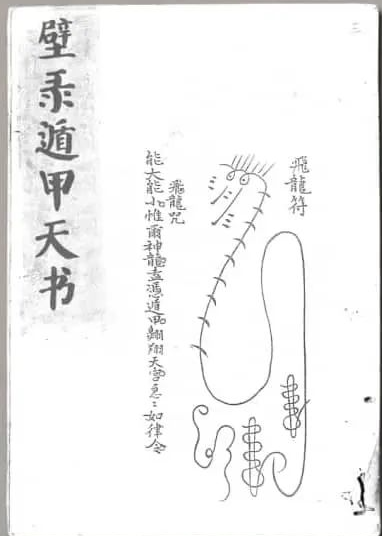 三
飛龍符
飛龍咒
能大能小惟爾神龍憑遁甲翱翔天宮急:如律令
壁遁甲天书